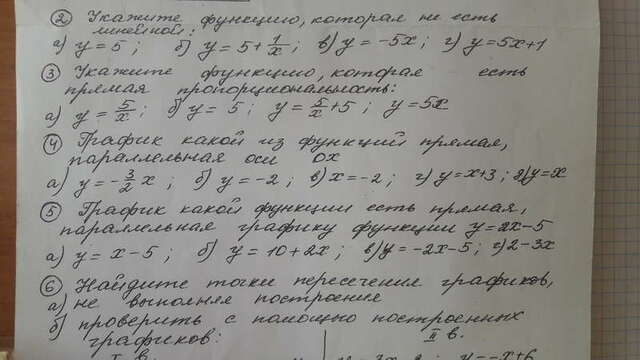 ② Укажите функцию, которая не есть
линейной:
а) y = 5; б) y = 5 + 1/x; в) y = -5x; г) y = 5x+1
③ Укажите функцию, которая есть
прямая пропорциональность:
а) y = 5/x; б) y = 5; y = 5/x + 5; y = 5x
④ График какой из функций прямая,
параллельная оси ox
а) y = -3/2 x; б) y = -2; в) x = -2; г) y = x+3; д) y = x
⑤ График какой функции есть прямая,
параллельная графику функции y = 2x - 5
а) y = x - 5; б) y = 10 + 2x; в) y = -2x - 5; г) 2 - 3x
⑥ Найдите точки пересечение графиков,
а) не выполняя построение
б) проверить с помощью построения
графиков: